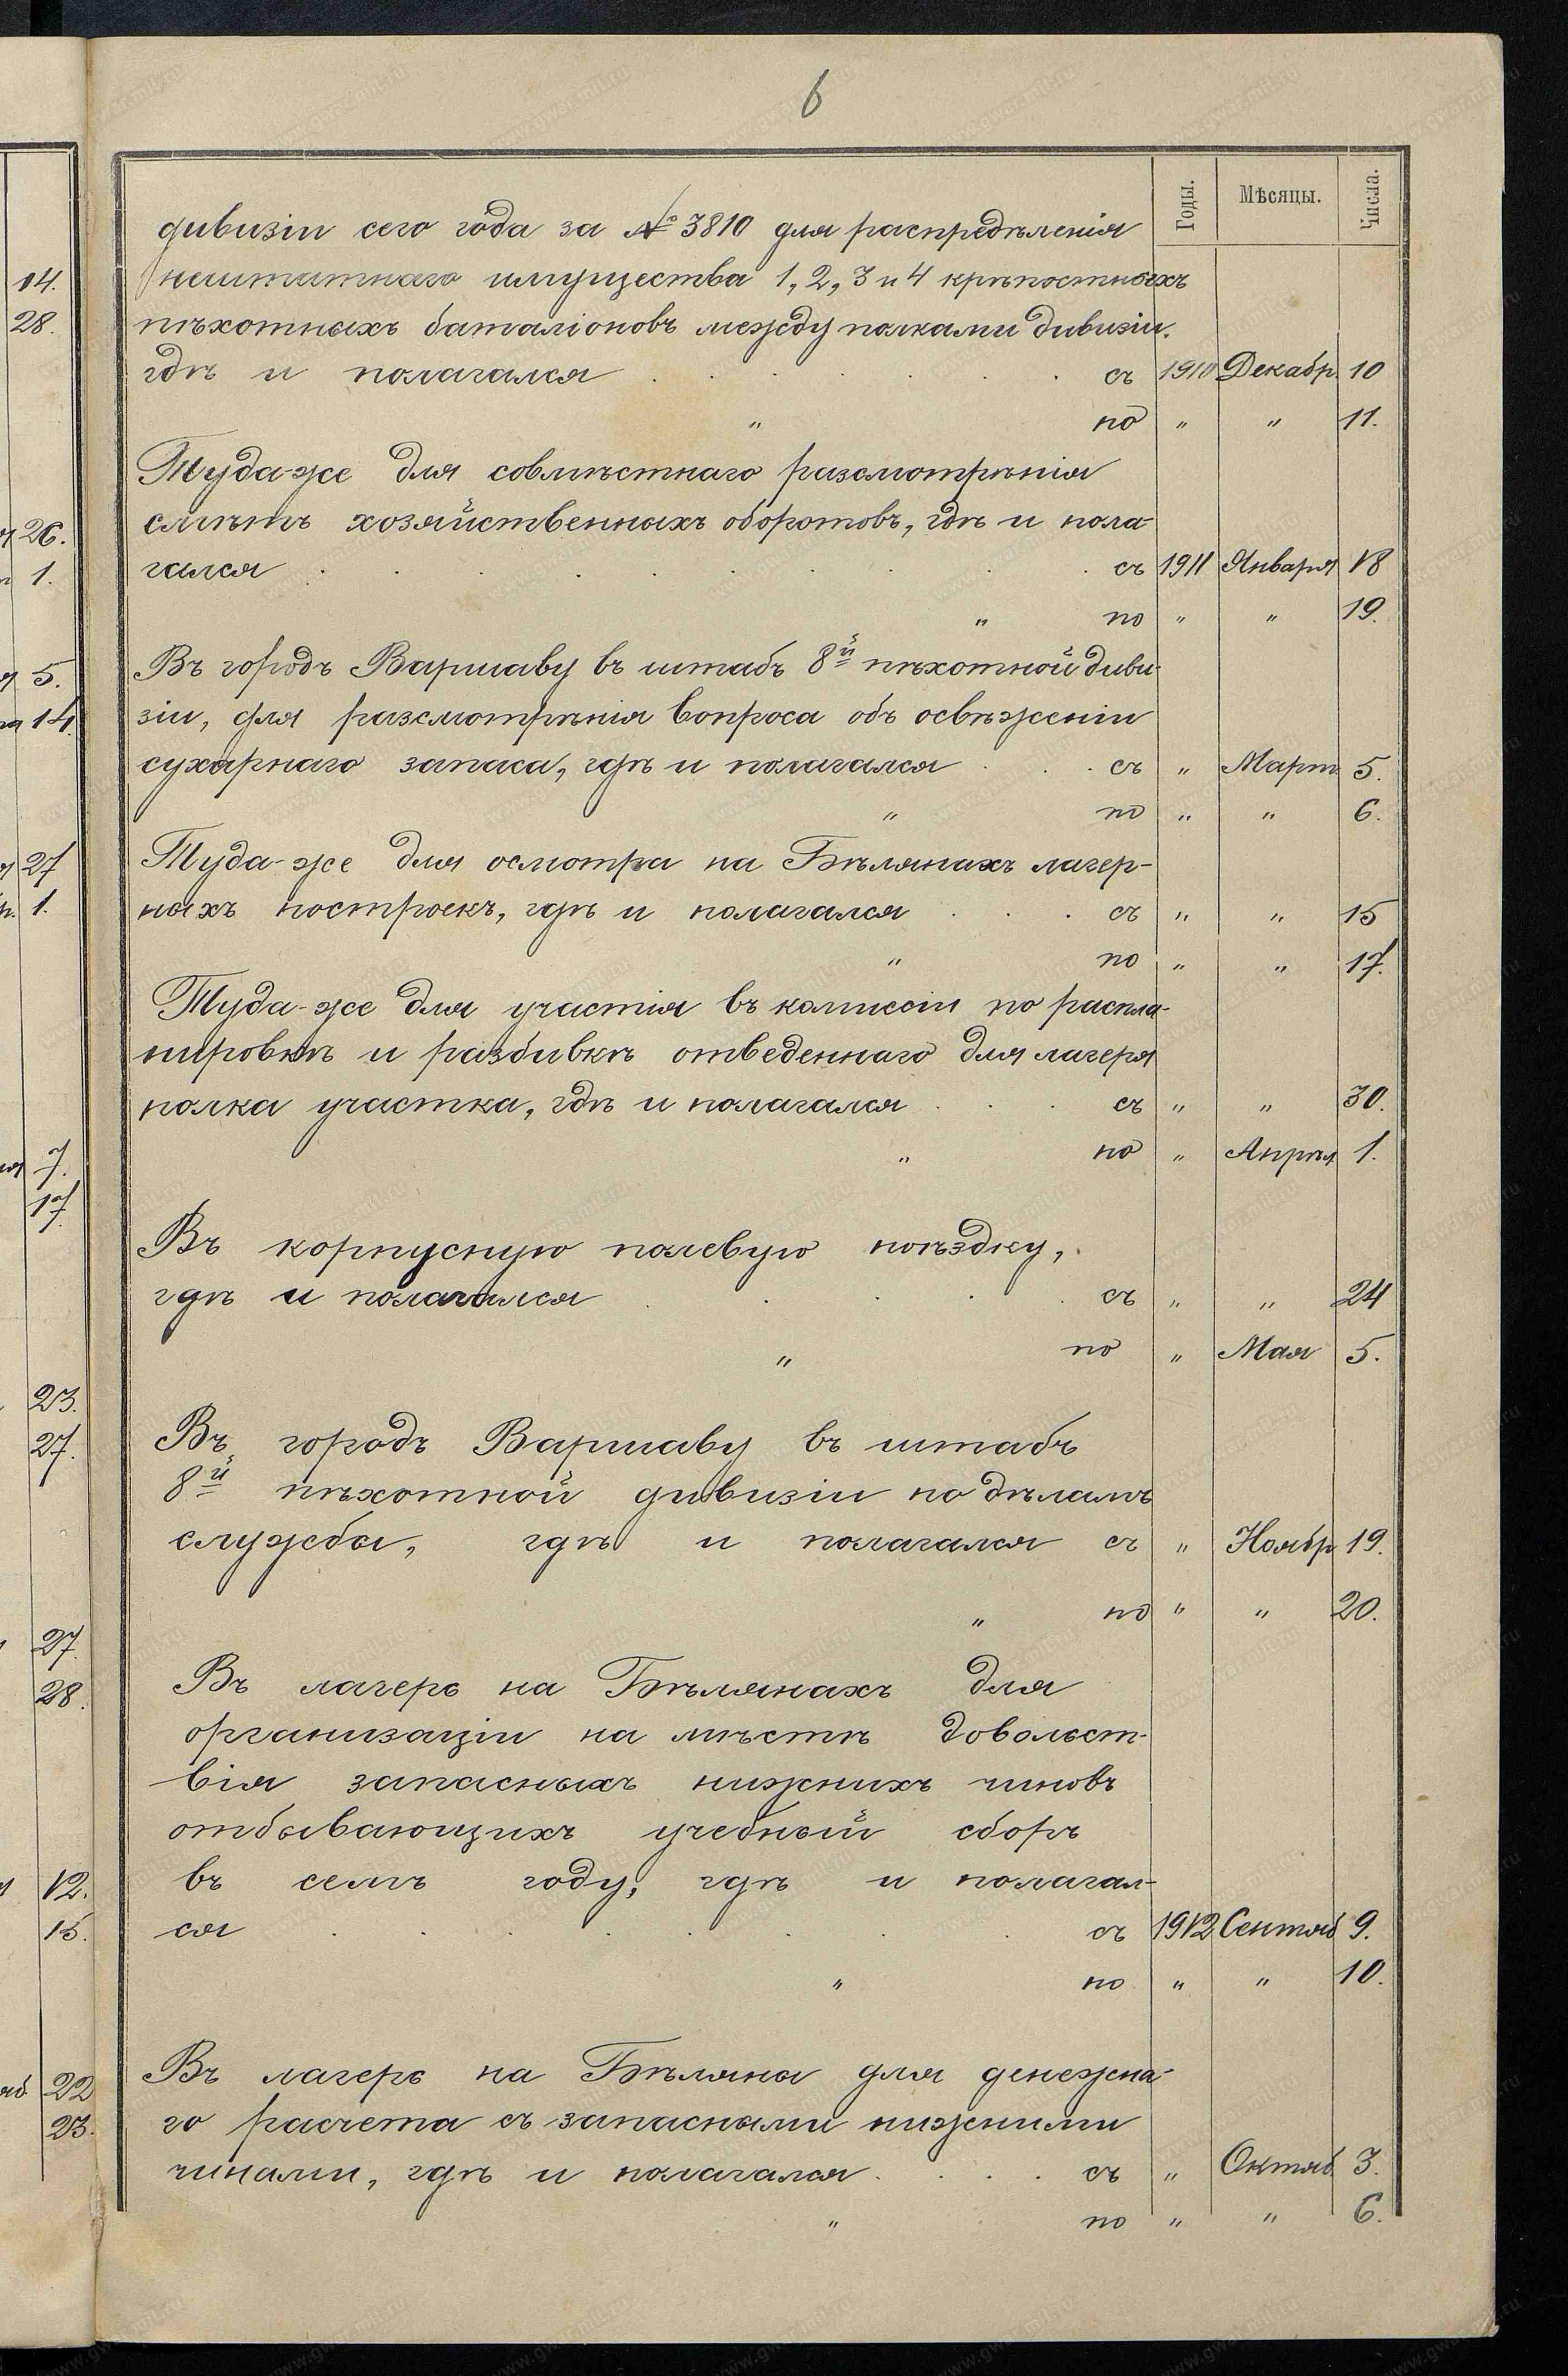 6
Годы. Мѣсяцы. Числа.
дивизіи сего года за № 3810 для распредѣленія
нештатнаго имущества 1, 2, 3 и 4 крѣпостныхъ
пѣхотныхъ баталіоновъ между полками дивизіи.
гдѣ и полагался . . . . . . съ 1910 Декабр. 10
" по " " 11.
Туда-же для совмѣстнаго разсмотрѣнія
смѣтъ хозяйственныхъ оборотовъ, гдѣ и пола-
гался . . . . . . . . . съ 1911 Января 18
" по " " 19.
Въ городъ Варшаву въ штабъ 8й пѣхотной диви-
зіи, для разсмотрѣнія вопроса объ освѣженіи
сухарнаго запаса, гдѣ и полагался . . . съ " Март. 5.
" по " " 6.
Туда-же для осмотра на Бѣлянахъ лагер-
ныхъ построекъ, гдѣ и полагался . . . съ " " 15
" по " " 17.
Туда-же для участія въ комиссіи по распла-
нировкѣ и разбивкѣ отведеннаго для лагеря
полка участка, гдѣ и полагался . . . съ " " 30.
" по " Апрѣл 1.
Въ корпусную полевую поѣздку,
гдѣ и полагался . . . . . съ " " 24
" по " Мая 5.
Въ городъ Варшаву въ штабъ
8й пѣхотной дивизіи по дѣламъ
службы, гдѣ и полагался съ " Ноябр 19.
" по " " 20.
Въ лагерь на Бѣлянахъ для
организаціи на мѣстѣ довольст-
вія запасныхъ нижнихъ чиновъ
отбывающихъ учебный сборъ
въ семъ году, гдѣ и полагал-
ся . . . . . . . . съ 1912 Сентяб 9.
" по " " 10.
Въ лагерь на Бѣляны для денежна-
го расчета съ запасными нижними
чинами, гдѣ и полагался . . . . съ " Октяб. 3.
" по " " 6.
14.
28.
26.
1.
5.
14.
27
1.
7.
17.
23.
27.
27.
28.
12.
15.
22
23.